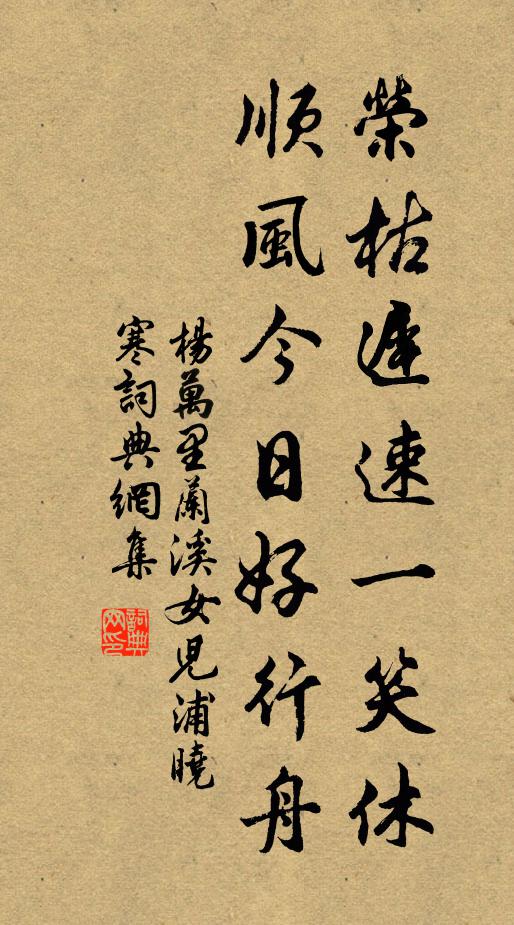 榮枯遲速一笑休
順風今日好行舟
楊萬里蘭溪女兒浦曉
寒詞典網集
詞典
网印